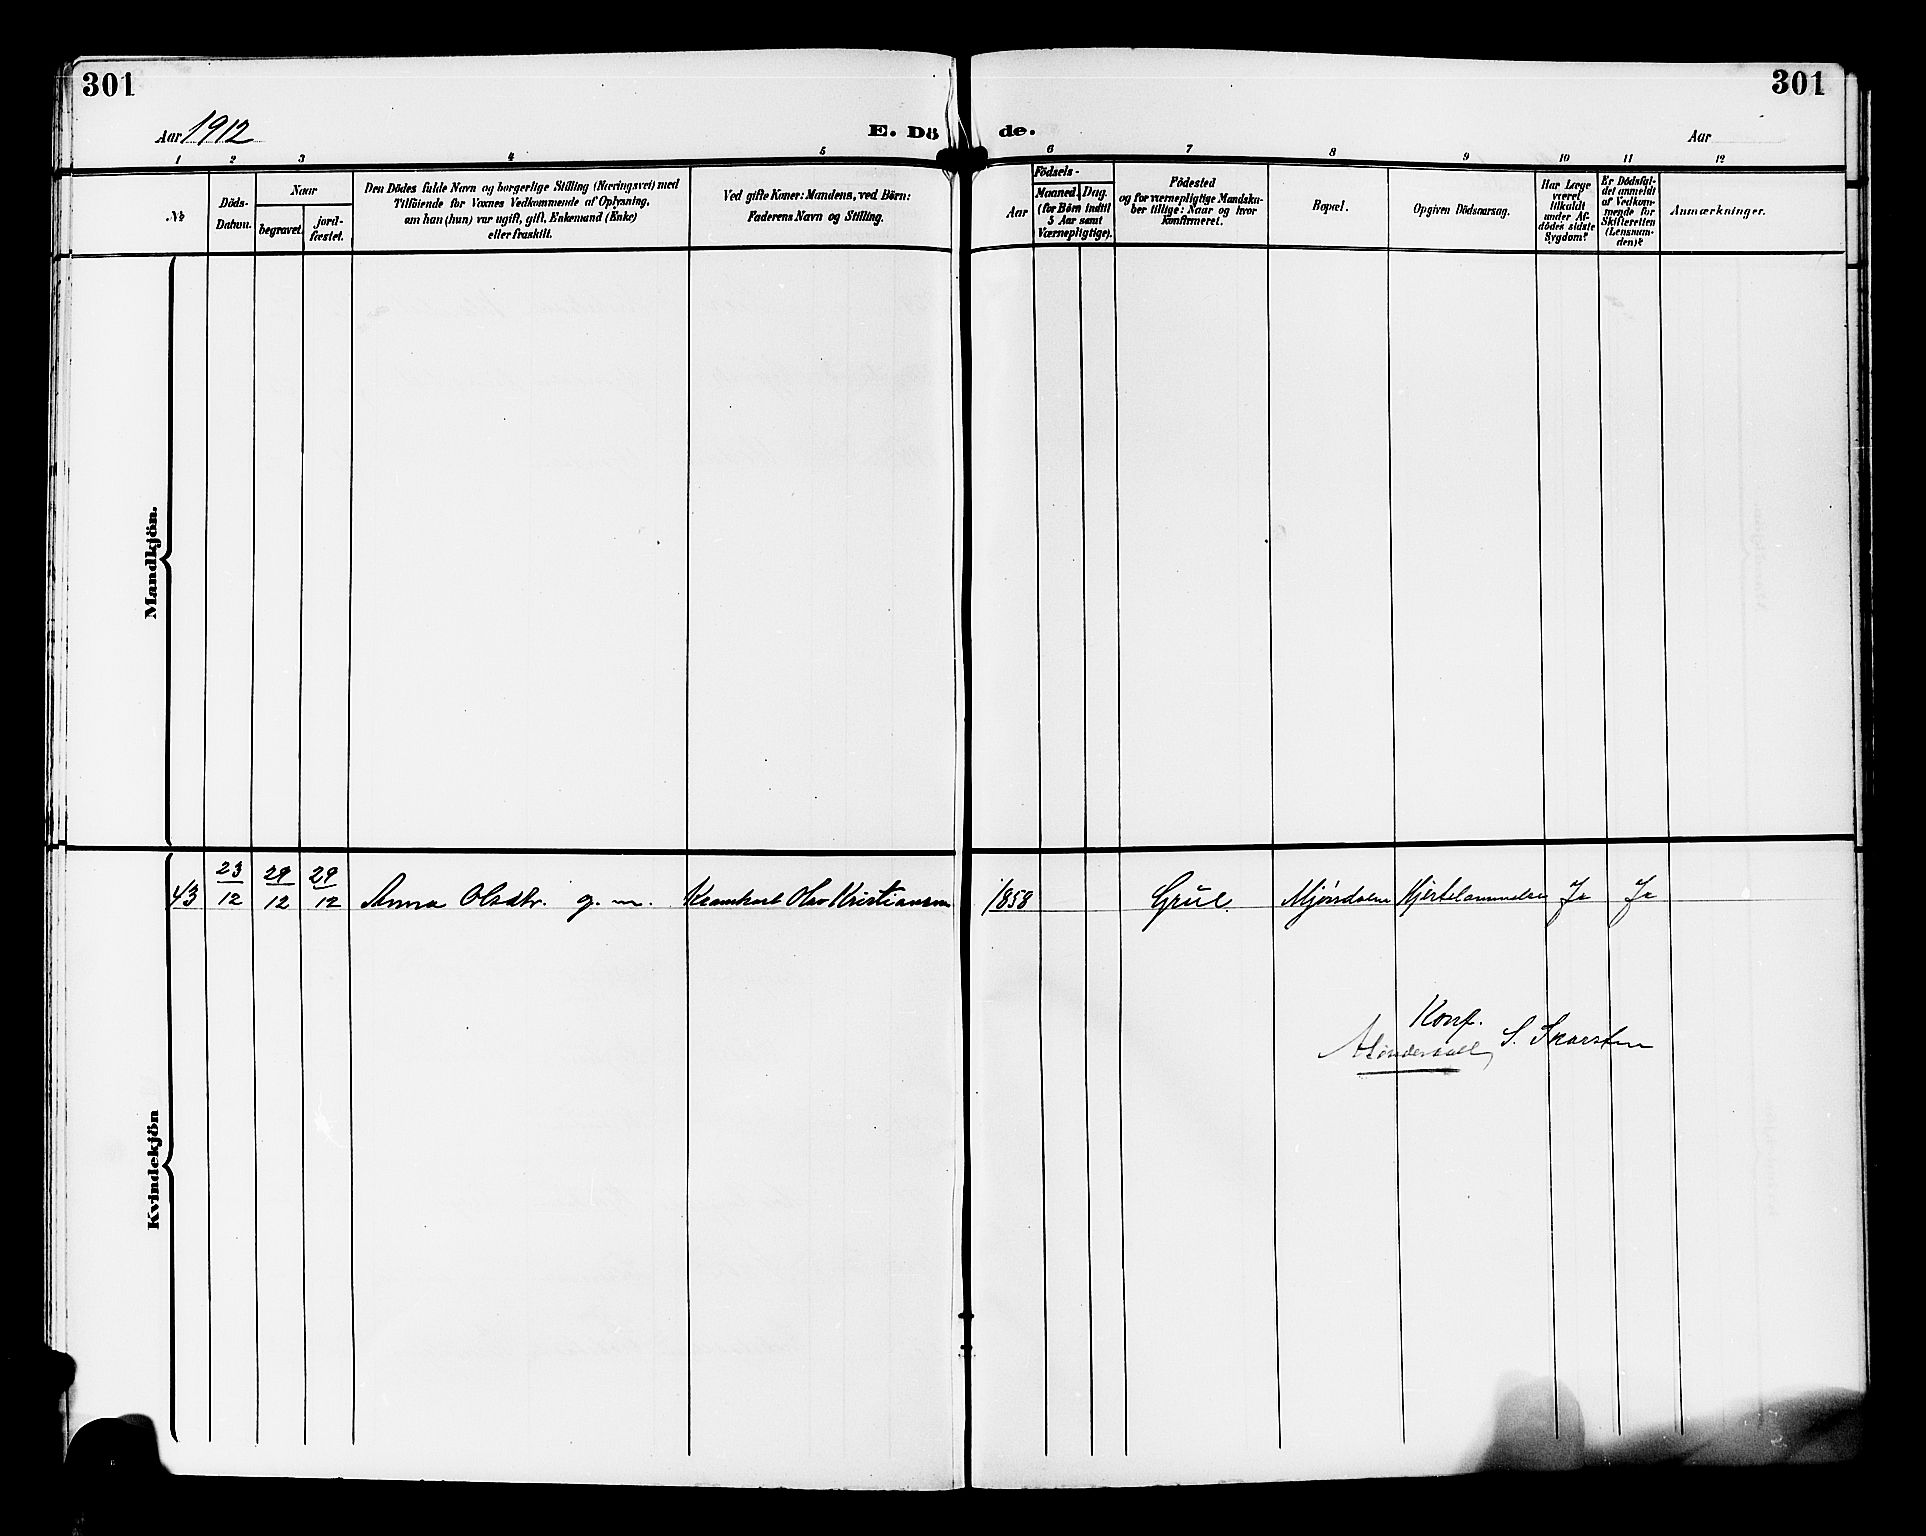 301
301
Aar 1912
E. Dö de.
Aar
1 2 3 4 5 6 7 8 9 10 11 12
№
Döds-
Datum.
Naar
begravet.
jord-
fæstet.
Den Dödes fulde Navn og borgerlige Stilling (Næringsvei) med
Tilföiende for Voxnes Vedkommende af Oplysning,
om han (hun) var ugift, gift, Enkemand (Enke)
eller fraskilt.
Ved gifte Koner: Mandens, ved Börn:
Faderens Navn og Stilling.
Födsels-
Aar
Maaned. Dag.
(for Börn indtil
5 Aar samt
Værnepligtige).
Födested
og for værnepligtige Mandska-
ber tillige: Naar og hvor
konfirmeret.
Bopæl.
Opgiven Dödsaarsag.
Har Læge
været
tilkaldt
under Af-
dödes sidste
Sygdom?
Er Dödsfal-
det anmeldt
af Vedkom-
mende for
Skifteretten
(Lensman-
den)?
Anmærkninger.
Mandkjön.
Kvindekjön
43 23/12 29/12 29/12 Anna Olsdtr. g. m. Olav Kristiansen 1858 Grue. Mjøndalen Hjertelammelse Ja Ja
Konf.
S. Skarsten